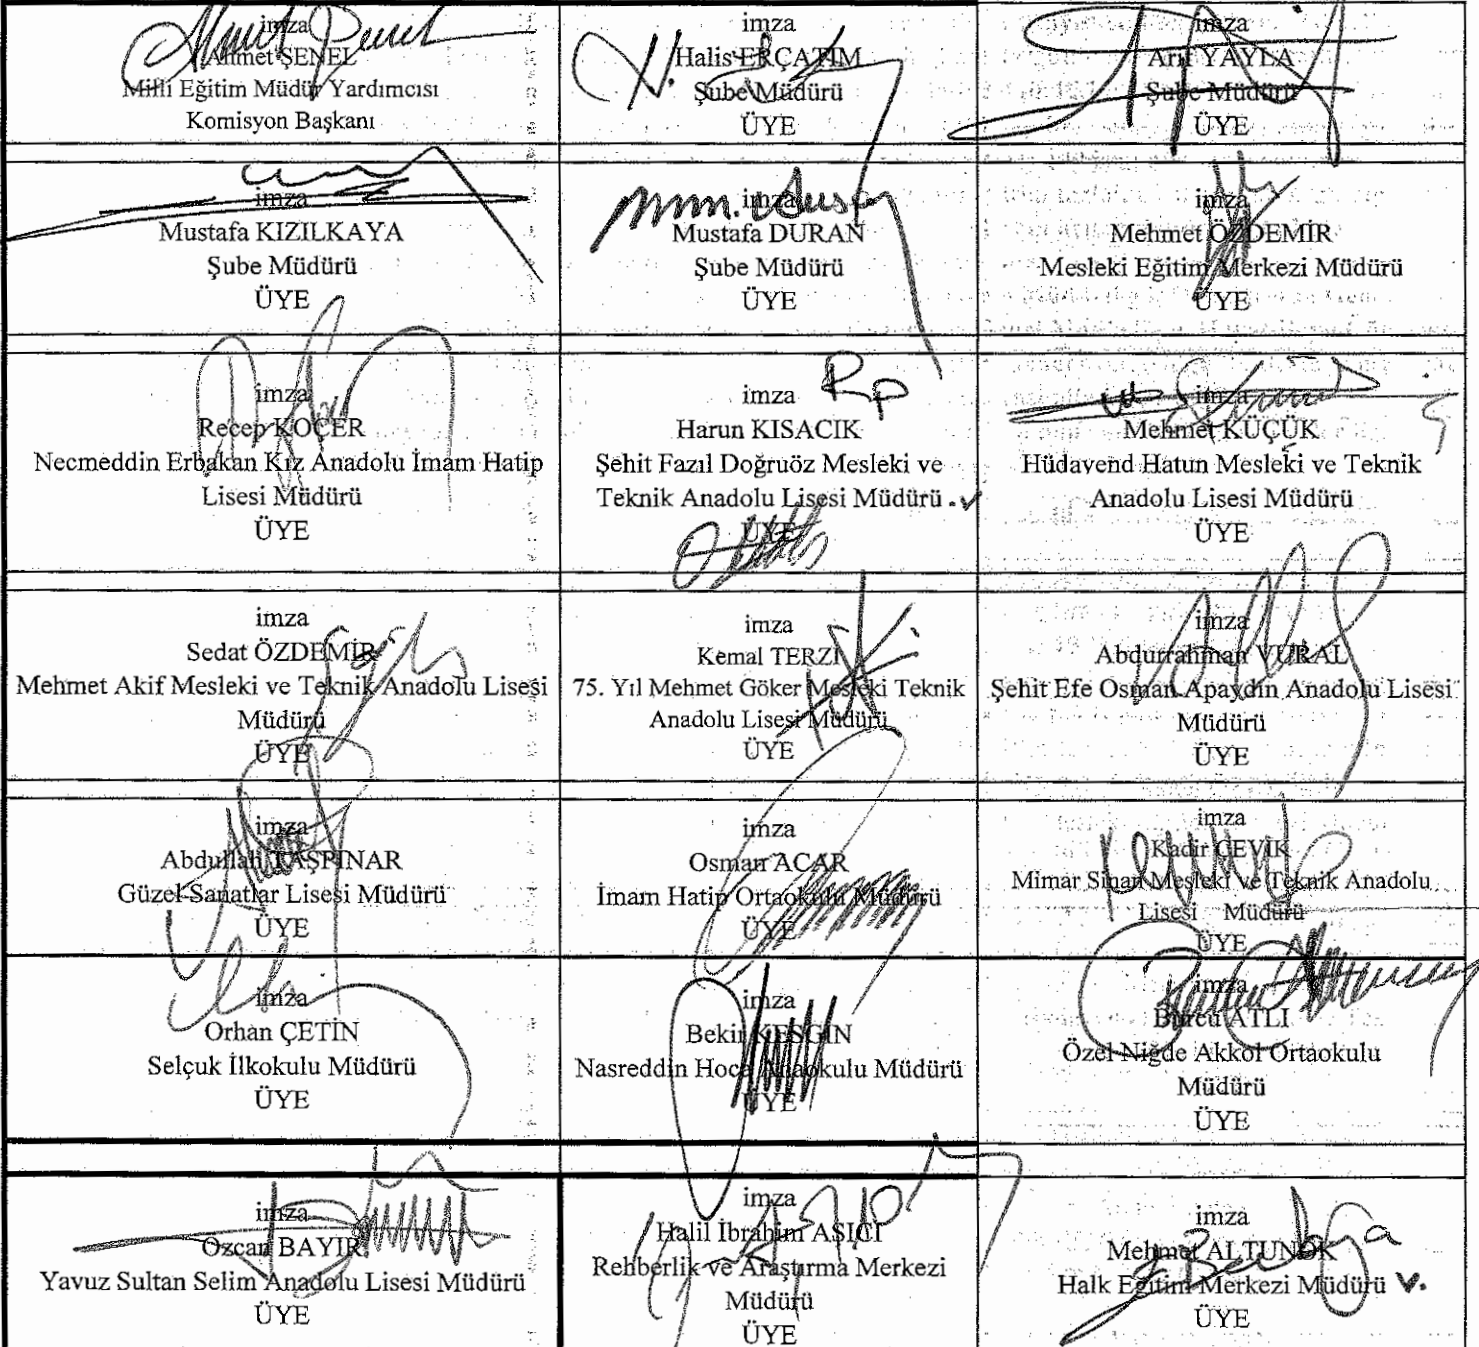 imza
Ahmet ŞENEL
Milli Eğitim Müdür Yardımcısı
Komisyon Başkanı
imza
Halis ERÇATIM
Şube Müdürü
ÜYE
imza
Arif YAYLA
Şube Müdürü
ÜYE
imza
Mustafa KIZILKAYA
Şube Müdürü
ÜYE
imza
Mustafa DURAN
Şube Müdürü
ÜYE
imza
Mehmet ÖZDEMİR
Mesleki Eğitim Merkezi Müdürü
ÜYE
imza
Recep KOÇER
Necmeddin Erbakan Kız Anadolu İmam Hatip
Lisesi Müdürü
ÜYE
imza
Harun KISACIK
Şehit Fazıl Doğruöz Mesleki ve
Teknik Anadolu Lisesi Müdürü
ÜYE
imza
Mehmet KÜÇÜK
Hüdavend Hatun Mesleki ve Teknik
Anadolu Lisesi Müdürü
ÜYE
imza
Sedat ÖZDEMİR
Mehmet Akif Mesleki ve Teknik Anadolu Lisesi
Müdürü
ÜYE
imza
Kemal TERZİ
75. Yıl Mehmet Göker Mesleki Teknik
Anadolu Lisesi Müdürü
ÜYE
imza
Abdurrahman VURAL
Şehit Efe Osman Apaydın Anadolu Lisesi
Müdürü
ÜYE
imza
Abdullah TAŞPINAR
Güzel Sanatlar Lisesi Müdürü
ÜYE
imza
Osman ACAR
İmam Hatip Ortaokulu Müdürü
ÜYE
imza
Kadir ÇEVİK
Mimar Sinan Mesleki ve Teknik Anadolu
Lisesi Müdürü
ÜYE
imza
Orhan ÇETİN
Selçuk İlkokulu Müdürü
ÜYE
imza
Bekir KESGİN
Nasreddin Hoca Anaokulu Müdürü
ÜYE
imza
Burcu ATLI
Özel Niğde Akkol Ortaokulu
Müdürü
ÜYE
imza
Özcan BAYIR
Yavuz Sultan Selim Anadolu Lisesi Müdürü
ÜYE
imza
Halil İbrahim AŞICI
Rehberlik ve Araştırma Merkezi
Müdürü
ÜYE
imza
Mehmet ALTUNOK
Halk Eğitim Merkezi Müdürü V.
ÜYE